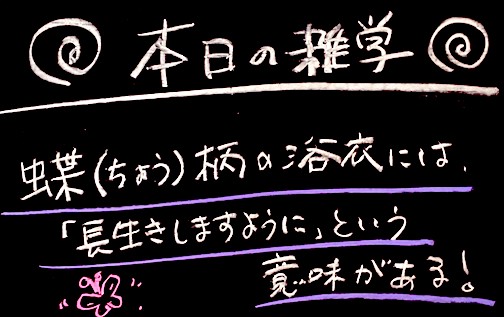 本日の雑学
蝶(ちょう)柄の浴衣には、
「長生きしますように」という
意味がある!